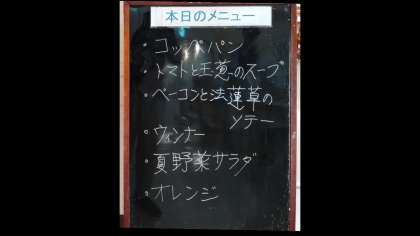 本日のメニュー
・コッペパン
・トマトと玉葱のスープ
・ベーコンと法蓮草の
ソテー
・ウィンナー
・夏野菜サラダ
・オレンジ